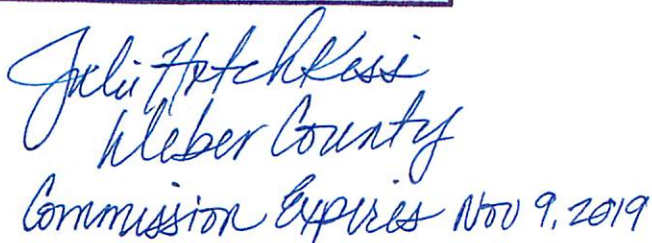 Julie Hotchkiss
Weber County
Commission Expires Nov 9, 2019